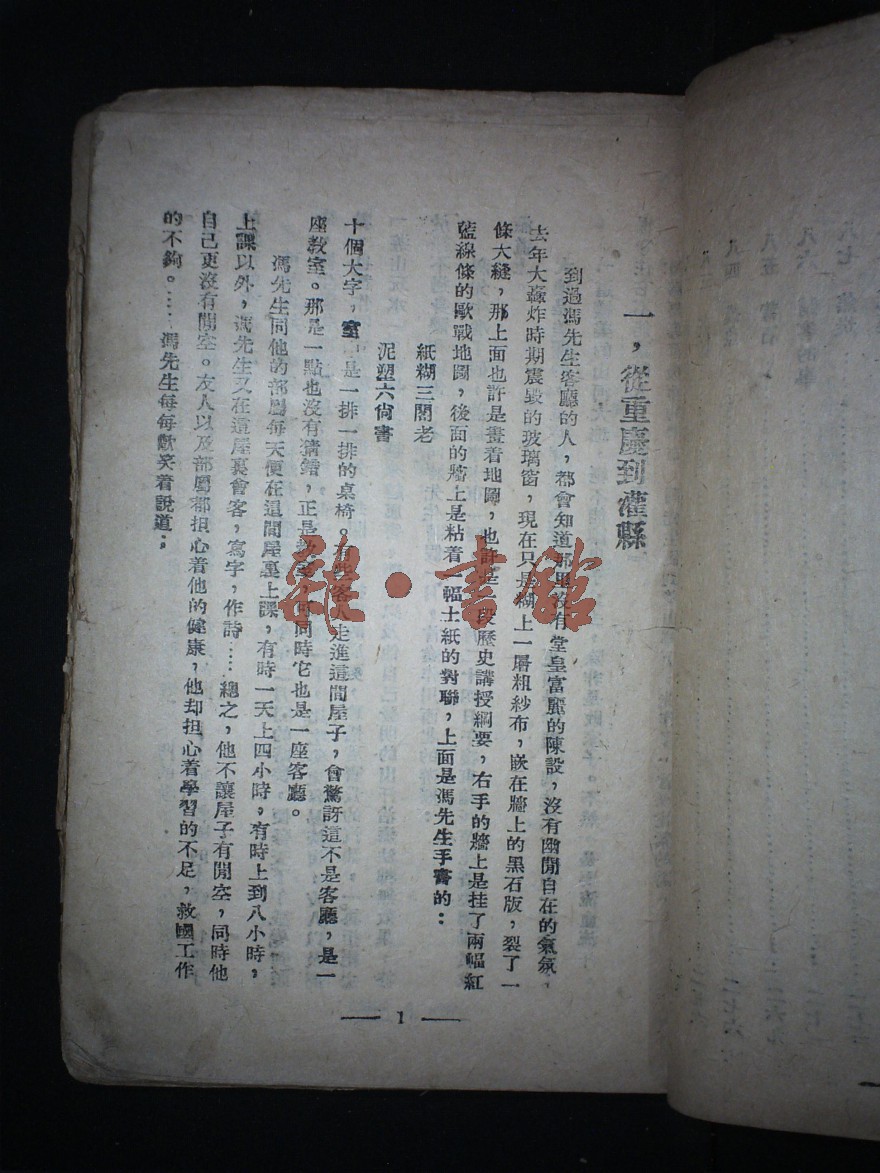 一，從重慶到灌縣
到過馮先生客廳的人，都會知道那里沒有堂皇富麗的陳設，沒有幽閒自在的氣氛，
去年大轟炸時期震毀的玻璃窗，現在只是糊上一層粗紗布，嵌在牆上的黑石版，裂了一
條大縫，那上面也許是畫着地圖，也許是一段歷史講授綱要，右手的牆上是挂了兩幅紅
藍線條的歐戰地圖，後面的牆上是粘着一幅土紙的對聯，上面是馮先生手書的：
紙糊三閣老
泥塑六尚書
十個大字，室 是一排一排的桌椅。有些客人走進這間屋子，會驚訝這不是客廳，是一
座教室。那是一點也沒有猜錯，正是教室，可同時它也是一座客廳。
馮先生同他的部屬每天便在這間屋裏上課，有時一天上四小時，有時上到八小時，
上課以外，馮先生又在這屋裏會客，寫字，作詩……總之，他不讓屋子有閒空，同時他
自己更沒有閒空。友人以及部屬都担心着他的健康，他却担心着學習的不足，救國工作
的不夠。……馮先生每每歡笑着說道：
— 1 —
雜·書館